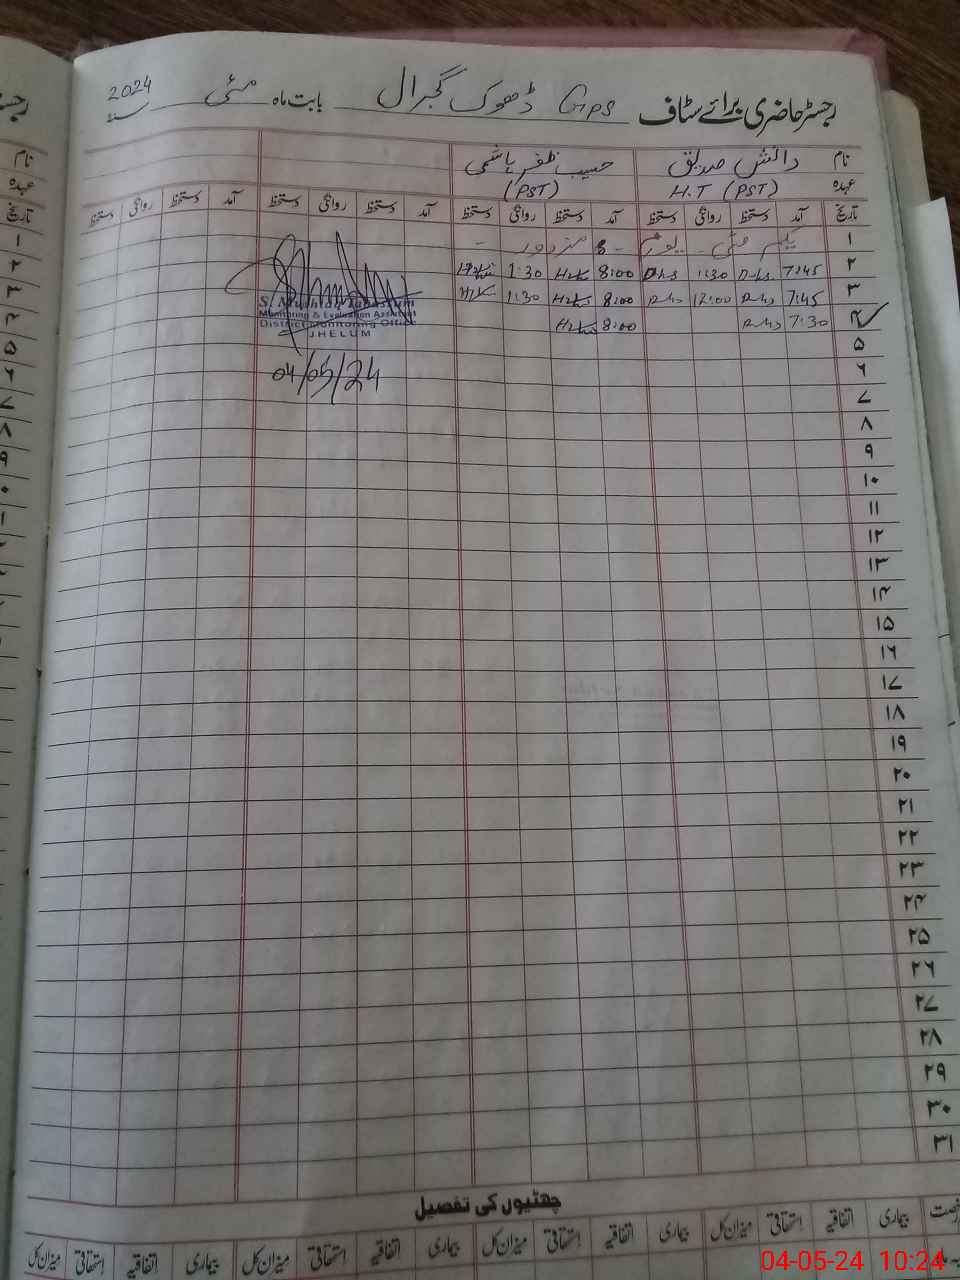 رجسٹر حاضری برائے سٹاف GPS ڈھوک گجرال بابت ماہ مئی سنہ 2024
نام دانش صدیق حسیب ظفر ہاشمی
عہدہ H.T (PST) (PST)
تاریخ آمد دستخط روانگی دستخط آمد دستخط روانگی دستخط آمد دستخط روانگی دستخط آمد دستخط روانگی دستخط
۱ یکم مئی - یوم مزدور -
۲ 7:45 1:30 8:00 1:30
۳ 7:45 12:00 8:00 1:30
۴ 7:30 8:00
S. Mukhtar Tabassum
Monitoring & Evaluation Assistant
District Monitoring Office
JHELUM
04/05/24
۵
۶
۷
۸
۹
۱۰
۱۱
۱۲
۱۳
۱۴
۱۵
۱۶
۱۷
۱۸
۱۹
۲۰
۲۱
۲۲
۲۳
۲۴
۲۵
۲۶
۲۷
۲۸
۲۹
۳۰
۳۱
چھٹیوں کی تفصیل
بیماری اتفاقیہ استحقاقی میزان کل بیماری اتفاقیہ استحقاقی میزان کل بیماری اتفاقیہ استحقاقی میزان کل بیماری اتفاقیہ استحقاقی میزان کل
04-05-24 10:24